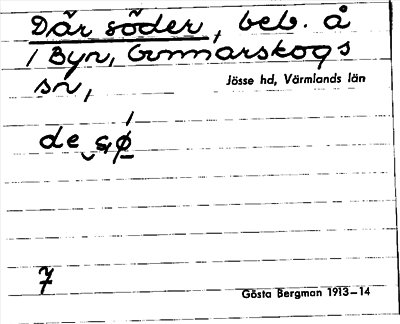 Där söder, beb. å
/ Byn, Gunnarskogs
sn,
Jösse hd, Värmlands län
7
Gösta Bergman 1913–14